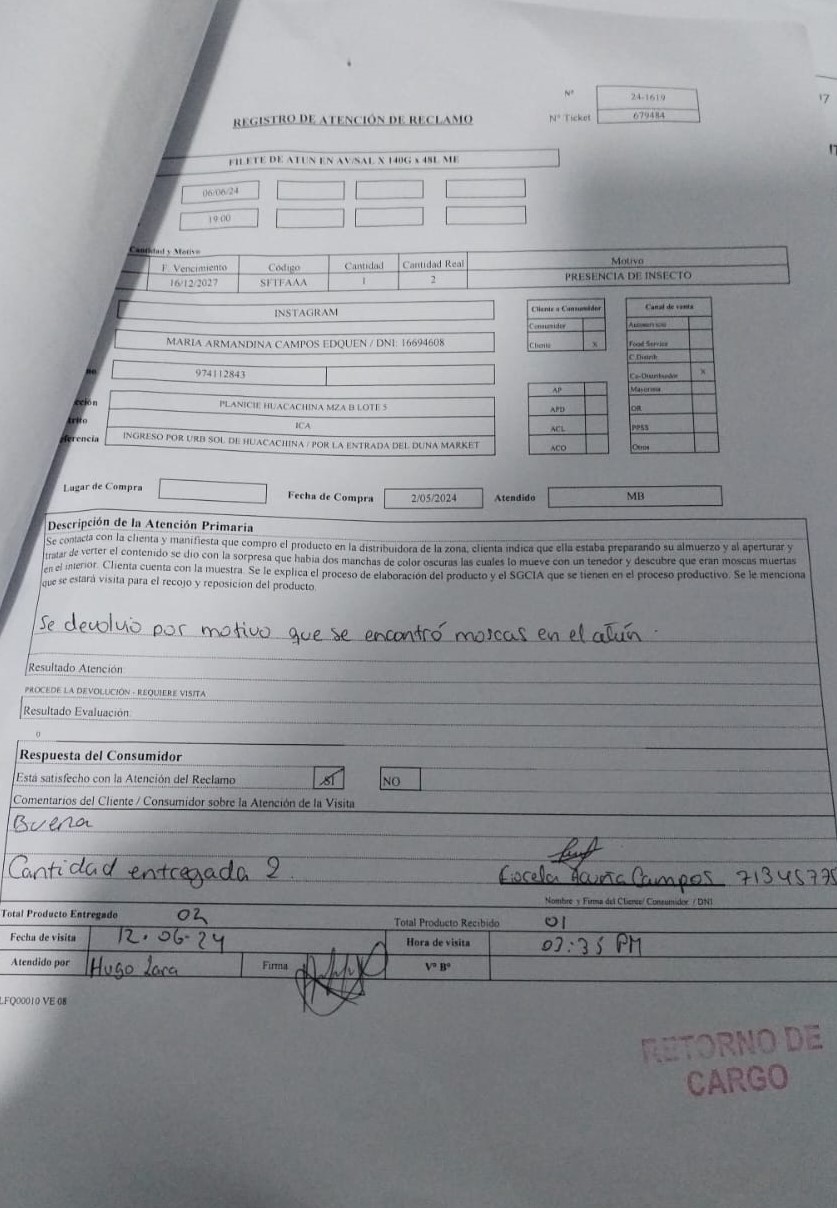 Nº 24-1619
REGISTRO DE ATENCIÓN DE RECLAMO
Nº Ticket 679484
17
FILETE DE ATUN EN AV/SAL X 140G x 48L ME
06/06/24
19:00
Cantidad y Motivo
F. Vencimiento Código Cantidad Cantidad Real Motivo
16/12/2027 SFTFAAA 1 2 PRESENCIA DE INSECTO
INSTAGRAM
MARIA ARMANDINA CAMPOS EDQUEN / DNI: 16694608
974112843
PLANICIE HUACACHINA MZA B LOTE 5
ICA
erencia INGRESO POR URB SOL DE HUACACHINA / POR LA ENTRADA DEL DUNA MARKET
Cliente o Consumidor
Consumidor
Cliente X
AP
APD
ACL
ACO
Canal de venta
Autoservicio
Food Service
C.Distrib
Co-Distribuidor X
Mayorista
DR
PPSS
Otros
Lugar de Compra Fecha de Compra 2/05/2024 Atendido MB
Descripción de la Atención Primaria
Se contacta con la clienta y manifiesta que compro el producto en la distribuidora de la zona, clienta indica que ella estaba preparando su almuerzo y al aperturar y
tratar de verter el contenido se dio con la sorpresa que habia dos manchas de color oscuras las cuales lo mueve con un tenedor y descubre que eran moscas muertas
en el interior. Clienta cuenta con la muestra. Se le explica el proceso de elaboración del producto y el SGCIA que se tienen en el proceso productivo. Se le menciona
que se estará visita para el recojo y reposicion del producto.
Se devolvio por motivo que se encontró moscas en el atún.
Resultado Atención:
PROCEDE LA DEVOLUCIÓN - REQUIERE VISITA
Resultado Evaluación:
0
Respuesta del Consumidor
Está satisfecho con la Atención del Reclamo SI NO
Comentarios del Cliente / Consumidor sobre la Atención de la Visita
Buena
Cantidad entregada 2. Campos 71345775
Nombre y Firma del Cliente/ Consumidor / DNI
Total Producto Entregado 02 Total Producto Recibido 01
Fecha de visita 12.06-24 Hora de visita 03:35 PM
Atendido por Hugo Lara Firma Vº Bº
LFQ00010 VE 08
RETORNO DE
CARGO